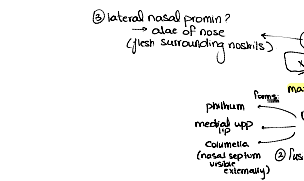 ③ lateral nasal promin?
→ alae of nose
(flesh surrounding nostrils)
forms:
philtrum
medial upp
lip
columella
(nasal septum
visible
externally)
②